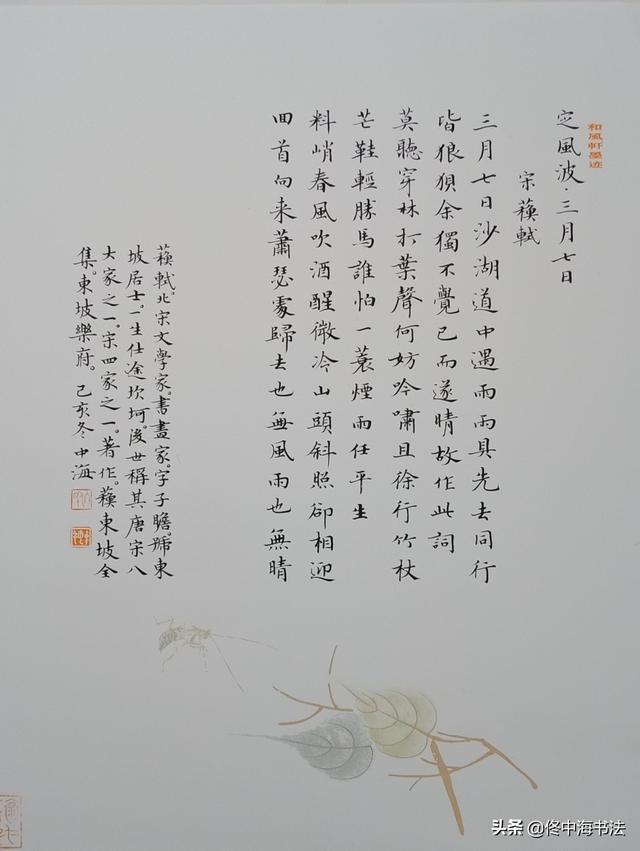 和風軒墨迹
定風波·三月七日
宋蘓軾
三月七日沙湖道中遇雨雨具先去同行
皆狼狽余獨不覺已而遂晴故作此詞
莫聽穿林打葉聲何妨吟嘯且徐行竹杖
芒鞋輕勝馬誰怕一蓑煙雨任平生
料峭春風吹酒醒微冷山頭斜照卻相迎
回首向来蕭瑟處歸去也無風雨也無晴
蘓軾。北宋文學家。書畫家。字子瞻。號東
坡居士。一生仕途坎坷。後世稱其唐宋八
大家之一。宋四家之一。著作。蘓東坡全
集。東坡樂府。己亥冬中海
头条 @佟中海书法